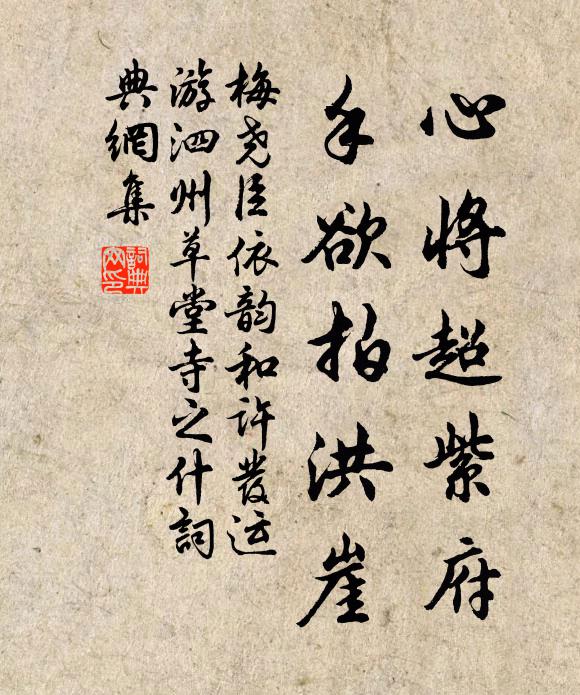 心将超紫府
手欲拍洪崖
梅尧臣依韵和许发运
游泗州草堂寺之什詞
典網集
詞典
网印